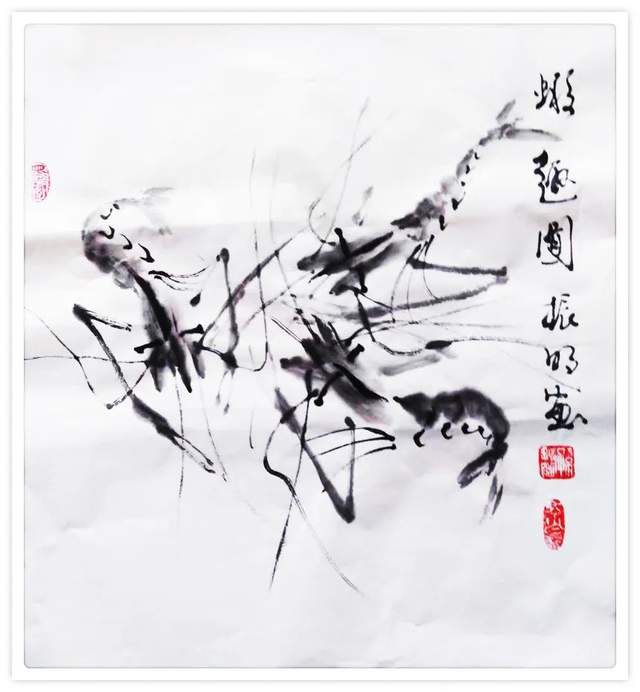 蝦趣圖振明画